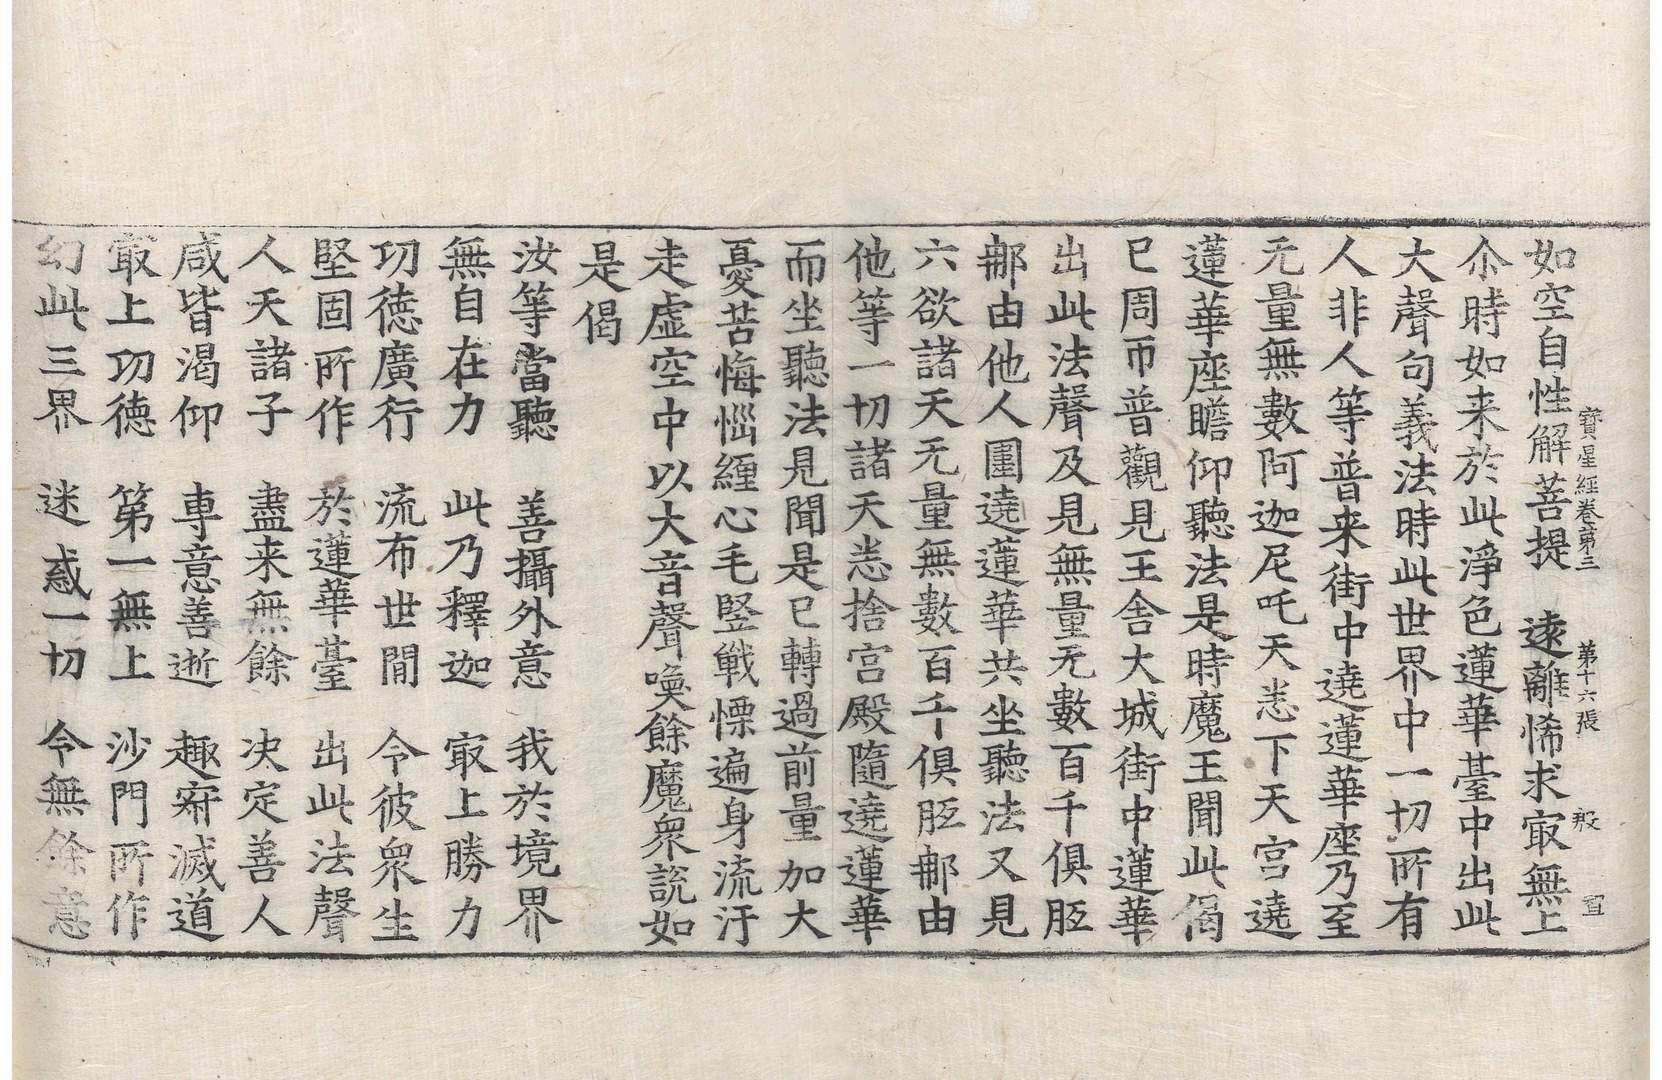 寶星經卷第三 第十六張 殷 宣
如空自性解菩提 遠離悕求㝡無上
尒時如来於此淨色蓮華臺中出此
大聲句義法時此世界中一切所有
人非人等普来街中遶蓮華座乃至
无量無數阿迦尼吒天悉下天宫遶
蓮華座瞻仰聽法是時魔王聞此偈
已周帀普觀見王舍大城街中蓮華
出此法聲及見無量无數百千俱胝
那由他人圍遶蓮華共坐聽法又見
六欲諸天无量無數百千俱胝那由
他等一切諸天悉捨宫殿隨遶蓮華
而坐聽法見聞是已轉過前量加大
憂苦悔惱纏心毛竪戰慄遍身流汗
走虛空中以大音聲喚餘魔衆說如
是偈
汝等當聽 善攝外意 我於境界
無自在力 此乃釋迦 㝡上勝力
功德廣行 流布世間 令彼衆生
堅固所作 於蓮華臺 出此法聲
人天諸子 盡来無餘 决定善人
咸皆渴仰 專意善逝 趣寂滅道
㝡上功德 第一無上 沙門所作
幻此三界 迷惑一切 令無餘意